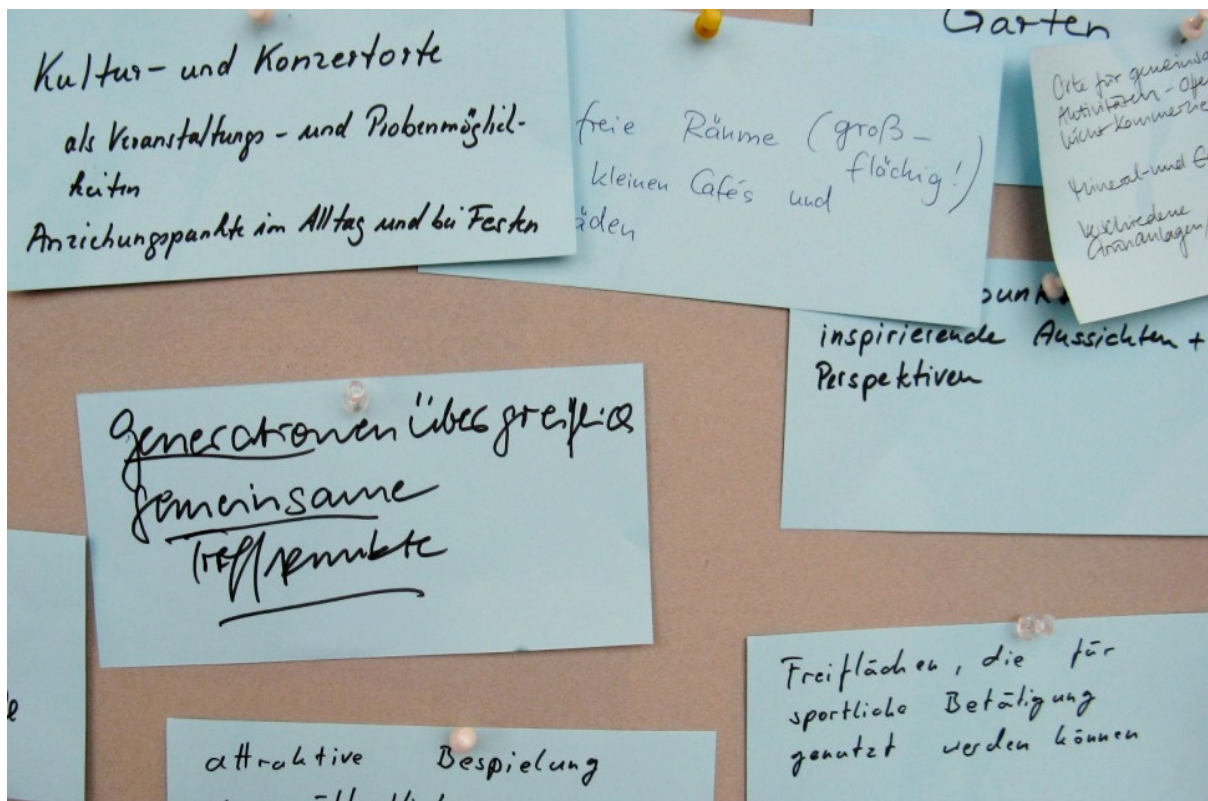 Kultur- und Konzertorte
als Veranstaltungs- und Probenmöglich-
keiten
Anziehungspunkte im Alltag und bei Festen
freie Räume (groß-
flächig!)
kleinen Cafés und
äden
Garten
Orte für
Aktivitäten -
nicht
Mineral- und
verschiedene
Grünanlagen,
inspirierende Aussichten +
Perspektiven
Generationen übergreifend
gemeinsame
Treffpunkte
Freiflächen, die für
sportliche Betätigung
genutzt werden können
attraktive Bespielung